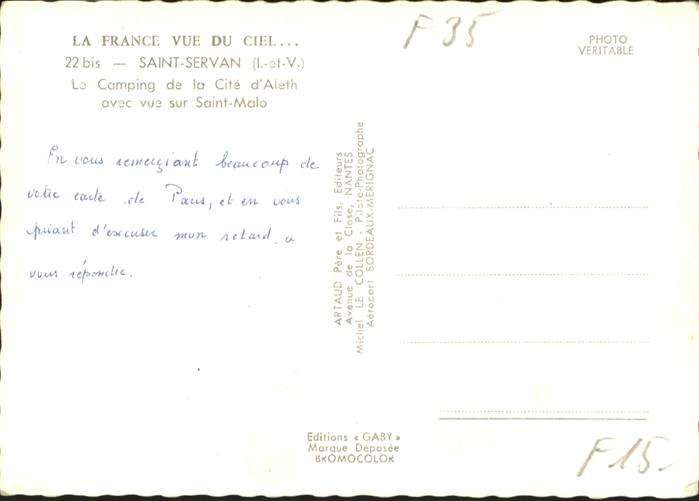 LA FRANCE VUE DU CIEL...
22 bis — SAINT-SERVAN (I.-et-V.)
Le Camping de la Cité d'Aleth
avec vue sur Saint-Malo
F 35
PHOTO
VERITABLE
En vous remerçiant beaucoup de
votre carte de Paris, et en vous
priant d'excuser mon retard a
vous répondre.
ARTAUD Père et Fils, Editeurs
Avenue de la Close, NANTES
Michel LE COLLEN - Pilote-Photographe
Aéroport BORDEAUX-MERIGNAC
Editions « GABY »
Marque Déposée
BROMOCOLOR
F 15.